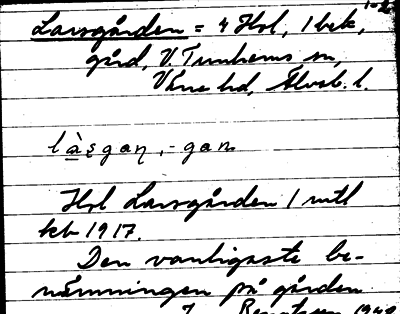 Larsgården = 4 Hsl, 1 bek,
gård, V. Tunhems sn,
Väne hd, Älvsb. l.
làşgaɳ, -gan
Hsl Larsgården / mtl
kb 1917.
Den vanligaste be-
nämningen på gården
J. Bengtsson